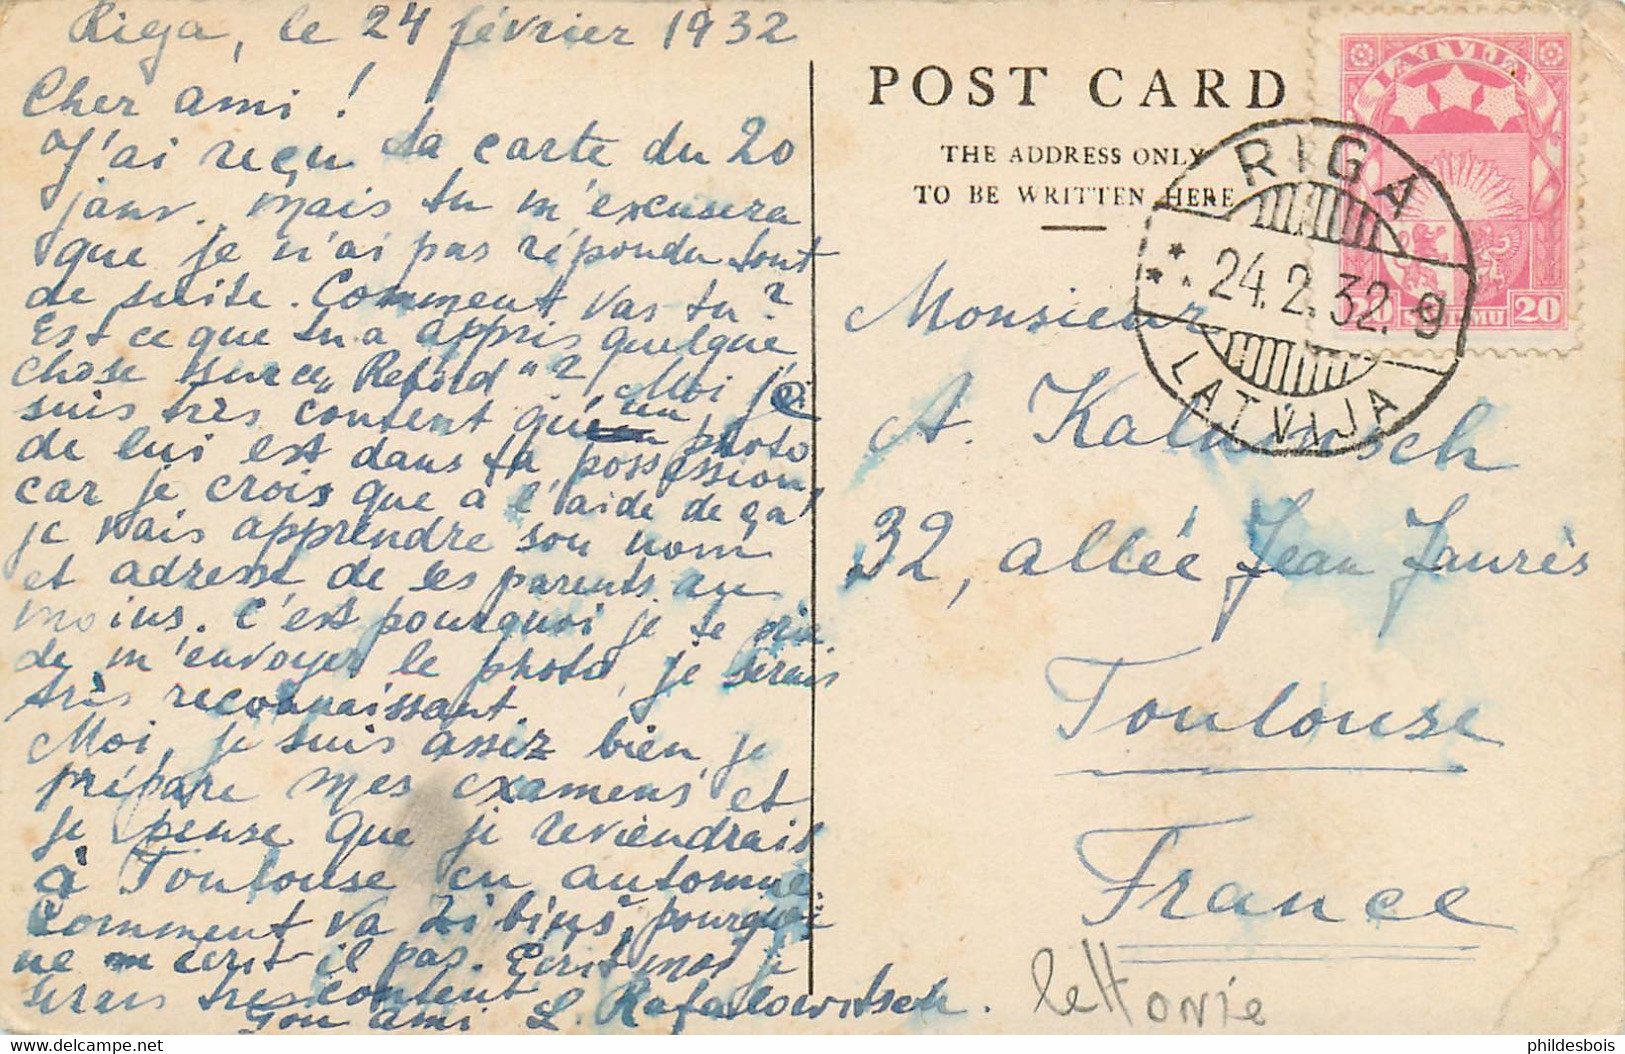 Riga, le 24 février 1932
Cher ami !
J'ai reçu ta carte du 20
janv. mais tu m'excusera
que je n'ai pas répondu tout
de suite. Comment vas tu?
Est ce que tu a appris quelque
chose sur ce „Refold"? Moi je
suis très content qu'un photo
de lui est dans ta possession,
car je crois que à l'aide de ça
je vais apprendre son nom
et adresse de les parents au
moins. C'est pourquoi je te prie
de m'envoyer le photo, je serais
très reconnaissant.
Moi, je suis assez bien, je
prépare mes examens et
je pense que je reviendrais
à Toulouse en automne.
Comment va Zibinš, pourquoi
ne m'écrit il pas. Ecrit moi je
serais tres content
Ton ami L. Rafalowitsch.
POST CARD
THE ADDRESS ONLY
TO BE WRITTEN HERE
LATVIJA
20 SANTIMU 20
RIGA
24.2.32. 9
LATVIJA
Monsieur
A. Kalninsch
32, allée Jean Jaurès
Toulouse
France
lettonie
delcampe.net
phildesbois